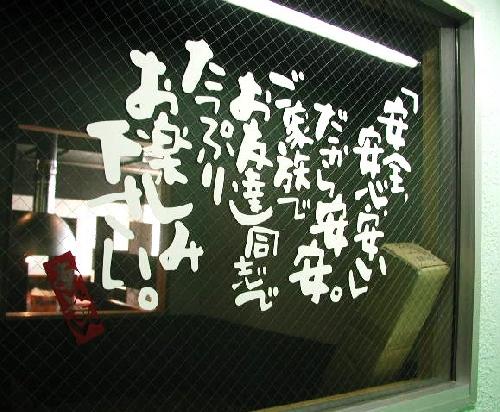 「安全、
安心、安い」
だから安安。
ご家族で
お友達同志で
たっぷり
お楽しみ
下さい。